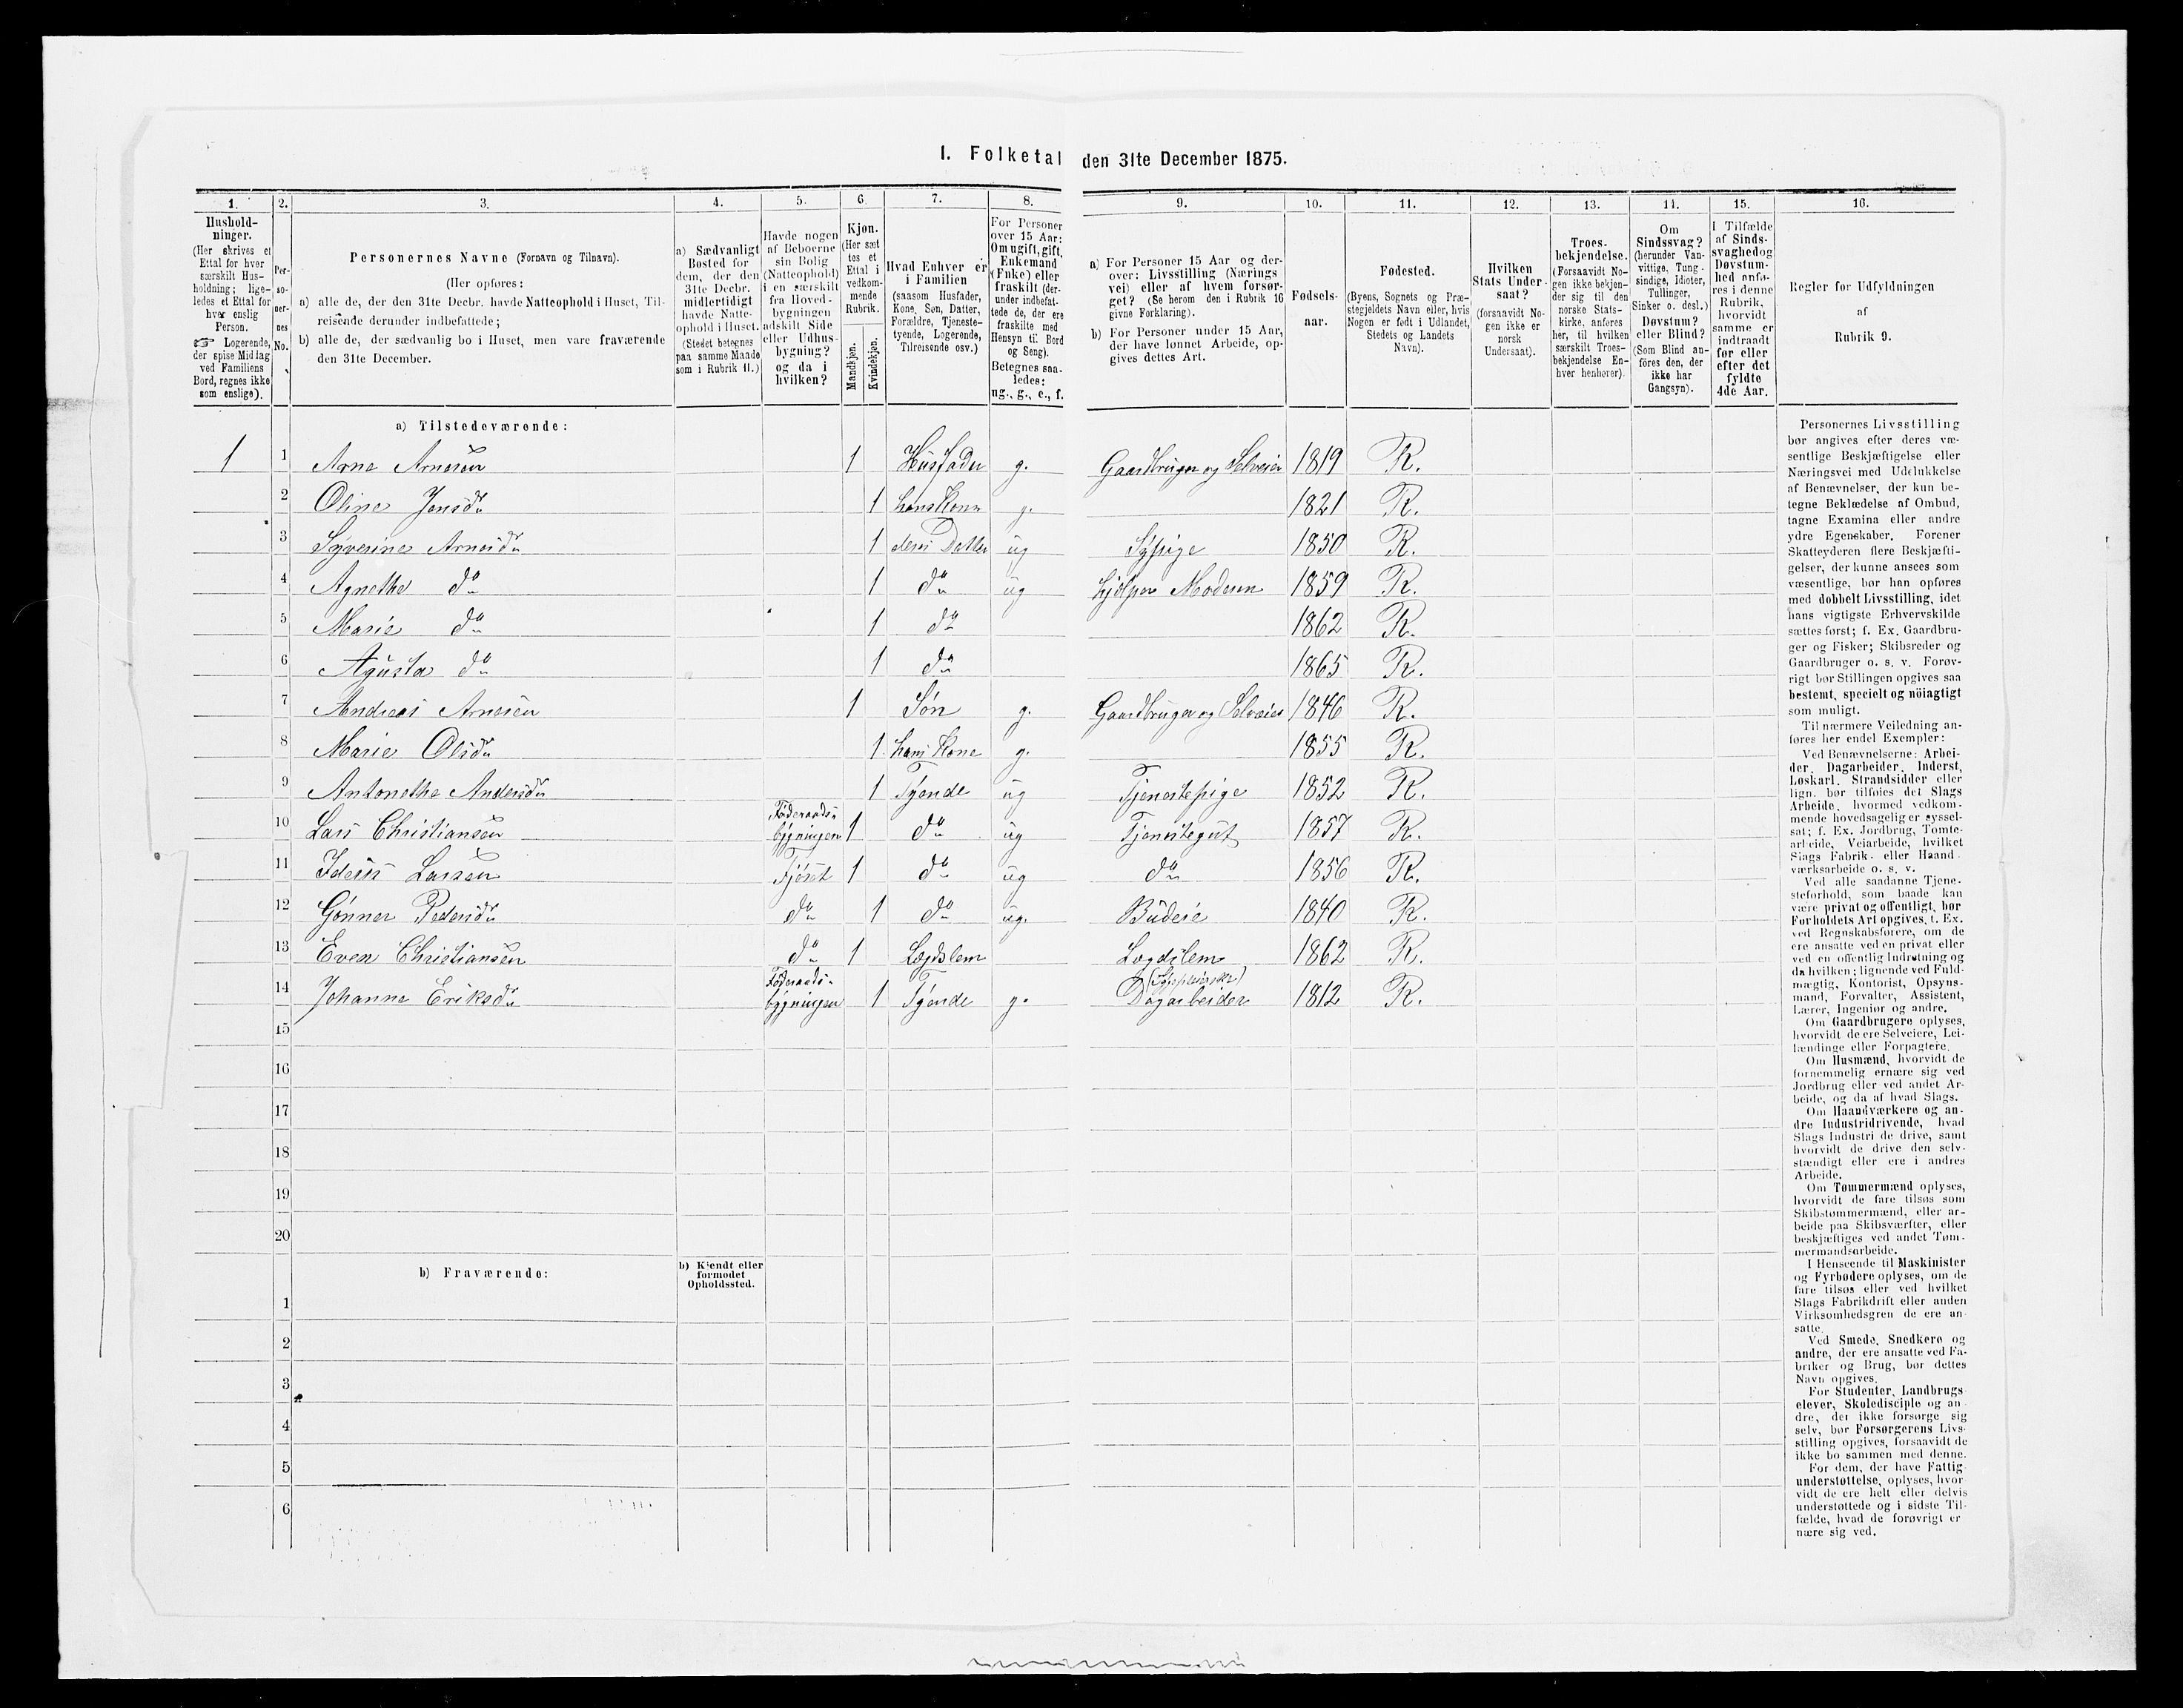 I. Folketal den 31te December 1875.
1. 2. 3. 4. 5. 6. 7. 8. 9. 10. 11. 12. 13. 14. 15. 16.
Hushold-
ninger.
(Her skrives et
Ettal for hver
særskilt Hus-
holdning; lige-
ledes et Ettal for
hver enslig
Person.
☞ Logerende,
der spise Middag
ved Familiens
Bord, regnes ikke
som enslige).
Per-
so-
ner-
nes
No.
Personernes Navne (Fornavn og Tilnavn).
(Her opføres:
a) alle de, der den 31te Decbr. havde Natteophold i Huset, Til-
reisende derunder indbefattede;
b) alle de, der sædvanlig bo i Huset, men vare fraværende
den 31te December.
a) Sædvanligt
Bosted for
dem, der den
31te Decbr.
midlertidigt
havde Natte-
ophold i Huset.
(Stedet betegnes
paa samme Maade
som i Rubrik 11.)
Havde nogen
af Beboerne
sin Bolig
(Natteophold)
i en særskilt
fra Hoved-
bygningen
adskilt Side
eller Udhus-
bygning?
og da i
hvilken?
Kjøn.
(Her sæt
tes et
Ettal i
vedkom-
mende
Rubrik.
Mandkjøn.
Kvindekjøn.
Hvad Enhver er
i Familien
(saasom Husfader,
Kone, Søn, Datter,
Forældre, Tjeneste-
tyende, Logerende,
Tilreisende osv.)
For Personer
over 15 Aar:
Om ugift, gift,
Enkemand
(Enke) eller
fraskilt (der-
under indbefat-
tede de, der ere
fraskilte med
Hensyn til Bord
og Seng).
Betegnes saa-
ledes:
ug., g., e., f.
a) For Personer 15 Aar og der-
over: Livsstilling (Nærings
vei) eller af hvem forsør-
get? (Se herom den i Rubrik 16
givne Forklaring).
b) For Personer under 15 Aar,
der have lønnet Arbeide, op-
gives dettes Art.
Fødsels-
aar.
Fødested.
(Byens, Sognets og Præ-
stegjeldets Navn eller, hvis
Nogen er født i Udlandet,
Stedets og Landets
Navn).
Hvilken
Stats Under-
saat?
(forsaavidt No-
gen ikke er
norsk
Undersaat).
Troes-
bekjendelse.
(Forsaavidt No-
gen ikke bekjen-
der sig til den
norske Stats-
kirke, anføres
her, til hvilken
særskilt Troes-
bekjendelse En-
hver henhører).
Om
Sindssvag?
(herunder Van-
vittige, Tung-
sindige, Idioter,
Tullinger,
Sinker o. desl.)
Døvstum?
eller Blind?
(Som Blind an-
føres den, der
ikke har
Gangsyn).
I Tilfælde
af Sinds-
svaghed og
Døvstum-
hed anfø-
res i denne
Rubrik,
hvorvidt
samme er
indtraadt
før eller
efter det
fyldte
4de Aar.
Regler for Udfyldningen
af
Rubrik 9.
a) Tilstedeværende:
1 1 Arne Arnesen 1 Husfader g. Gaardbruger og Selveier 1819 R.
2 Oline Jensdr 1 hans Kone g. 1821 R.
3 Syverine Arnesdr 1 deres Datter ug Sypige 1850 R.
4 Agnethe do 1 do ug hjelper Moderen 1859 R.
5 Marie do 1 do 1862 R.
6 Agusta do 1 do 1865 R.
7 Andreas Arnesen 1 Søn g. Gaardbruger og Selveier 1846 R.
8 Marie Olsdr 1 hans Kone g. 1855 R.
9 Antonethe Andersdr 1 Tyende ug Tjenestepige 1852 R.
10 Lars Christiansen Føderaads-
bygningen 1 do ug Tjenestegut 1857 R.
11 Larsen Fjøset 1 do ug do 1856 R.
12 Gønner Pedersdr do 1 do ug. Budeie 1840 R.
13 Even Christiansen do 1 Lægdslem Lægdslem 1862 R.
14 Johanne Eriksdr Føderaads-
bygningen 1 Tyende g. Dagarbeider 1812 R.
15
16
17
18
19
20
b) Fraværende:
b) Kjendt eller
formodet
Opholdssted.
1
2
3
4
5
6
Personernes Livsstilling
bør angives efter deres væ-
sentlige Beskjæftigelse eller
Næringsvei med Udelukkelse
af Benævnelser, der kun be-
tegne Beklædelse af Ombud,
tagne Examina eller andre
ydre Egenskaber. Forener
Skatteyderen flere Beskjæfti-
gelser, der kunne ansees som
væsentlige, bør han opføres
med dobbelt Livsstilling, idet
hans vigtigste Erhvervskilde
sættes først; f. Ex. Gaardbru-
ger og Fisker; Skibsreder og
Gaardbruger o. s. v. Forøv-
rigt bør Stillingen opgives saa
bestemt, specielt og nöiagtigt
som muligt.
Til nærmere Veiledning an-
føres her endel Exempler:
Ved Benævnelserne: Arbei-
der, Dagarbeider, Inderst,
Løskarl, Strandsidder eller
lign. bør tilføies det Slags
Arbeide, hvormed vedkom-
mende hovedsagelig er syssel-
sat; f. Ex. Jordbrug, Tomte-
arbeide, Veiarbeide, hvilket
Slags Fabrik- eller Haand-
værksarbeide o. s. v.
Ved alle saadanne Tjene-
steforhold, som baade kan
være privat og offentligt, bør
Forholdets Art opgives, t. Ex.
ved Regnskabsførere, om de
ere ansatte ved en privat eller
ved en offentlig Indretning og
da hvilken; lignende ved Fuld-
mægtig, Kontorist, Opsyns-
mand, Forvalter, Assistent,
Lærer, Ingeniør og andre.
Om Gaardbrugere oplyses,
hvorvidt de ere Selveiere, Lei-
lændinge eller Forpagtere.
Om Husmænd, hvorvidt de
fornemmelig ernære sig ved
Jordbrug eller ved andet Ar-
beide, og da af hvad Slags.
Om Haandværkere og an-
dre Industridrivende, hvad
Slags Industri de drive, samt
hvorvidt de drive den selv-
stændigt eller ere i andres
Arbeide.
Om Tømmermænd oplyses,
hvorvidt de fare tilsøs som
Skibstømmermænd, eller ar-
beide paa Skibsværfter, eller
beskjæftiges ved andet Tøm-
mermandsarbeide.
I Henseende til Maskinister
og Fyrbødere oplyses, om de
fare tilsøs eller ved hvilket
Slags Fabrikdrift eller anden
Virksomhedsgren de ere an-
satte.
Ved Smede, Snedkere og
andre, der ere ansatte ved Fa-
briker og Brug, bør dettes
Navn opgives.
For Studenter, Landbrugs-
elever, Skoledisciple og an-
dre, der ikke forsørge sig
selv, bør Forsørgerens Livs-
stilling opgives, forsaavidt de
ikke bo sammen med denne.
For dem, der have Fattig-
understøttelse, oplyses, hvor-
vidt de ere helt eller delvis
understøttede og i sidste Til-
fælde, hvad de forøvrigt er
nære sig ved.